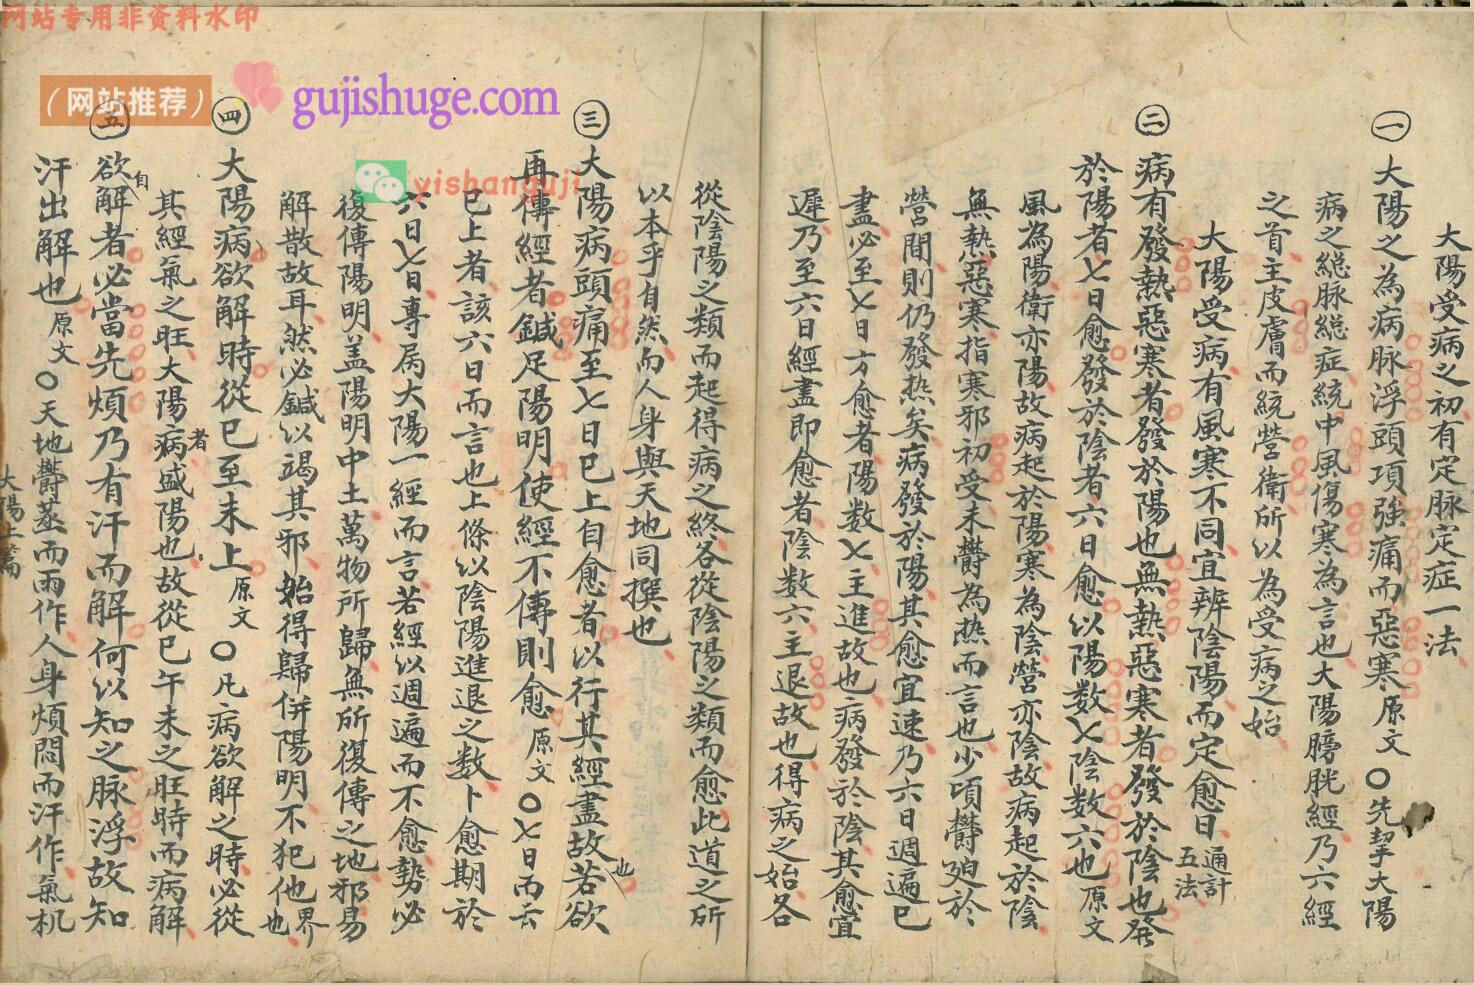 网站专用非资料水印
（网站推荐）
gujishuge.com
yishanguji
大陽受病之初有定脉定症一法
㊀大陽之為病脉浮頭項強痛而惡寒原文〇先挈大陽
病之縂脉縂症統中風傷寒為言也大陽膀胱經乃六經
之首主皮膚而統營衛所以為受病之始
大陽受病有風寒不同宜辨陰陽而定愈日通計五法
㊁病有發熱惡寒者發於陽也無熱惡寒者發於陰也發
於陽者七日愈發於陰者六日愈以陽数七陰数六也原文
風為陽衛亦陽故病起於陽寒為陰營亦陰故病起於陰
無熱惡寒指寒邪初受未欝為热而言也少頃欝廹於
營間則仍發热矣病發於陽其愈宜速乃六日週遍已
盡必至七日方愈者陽数七主進故也病發於陰其愈宜
遲乃至六日經盡即愈者陰数六主退故也得病之始各
從陰陽之類而起得病之終各從陰陽之類而愈此道之所
以本乎自然而人身與天地同撰也
㊂大陽病頭痛至七日已上自愈者以行其經盡故也若欲
再傳經者鍼足陽明使經不傳則愈原文〇七日而云
已上者該六日而言也上條以陰陽進退之数卜愈期於
六日七日專属大陽一經而言若經以週遍而不愈勢必
復傳陽明盖陽明中土萬物所歸無所復傳之地邪易
解散故耳然必鍼以竭其邪始得歸併陽明不犯他界也
㊃大陽病欲解時從巳至未上原文〇凡病欲解之時必從
其經氣之旺大陽病者盛陽也故從巳午未之旺時而病解
㊄欲自解者必當先煩乃有汗而解何以知之脉浮故知
汗出解也原文〇天地欝蒸而雨作人身煩悶而汗作氣机
大陽上篇